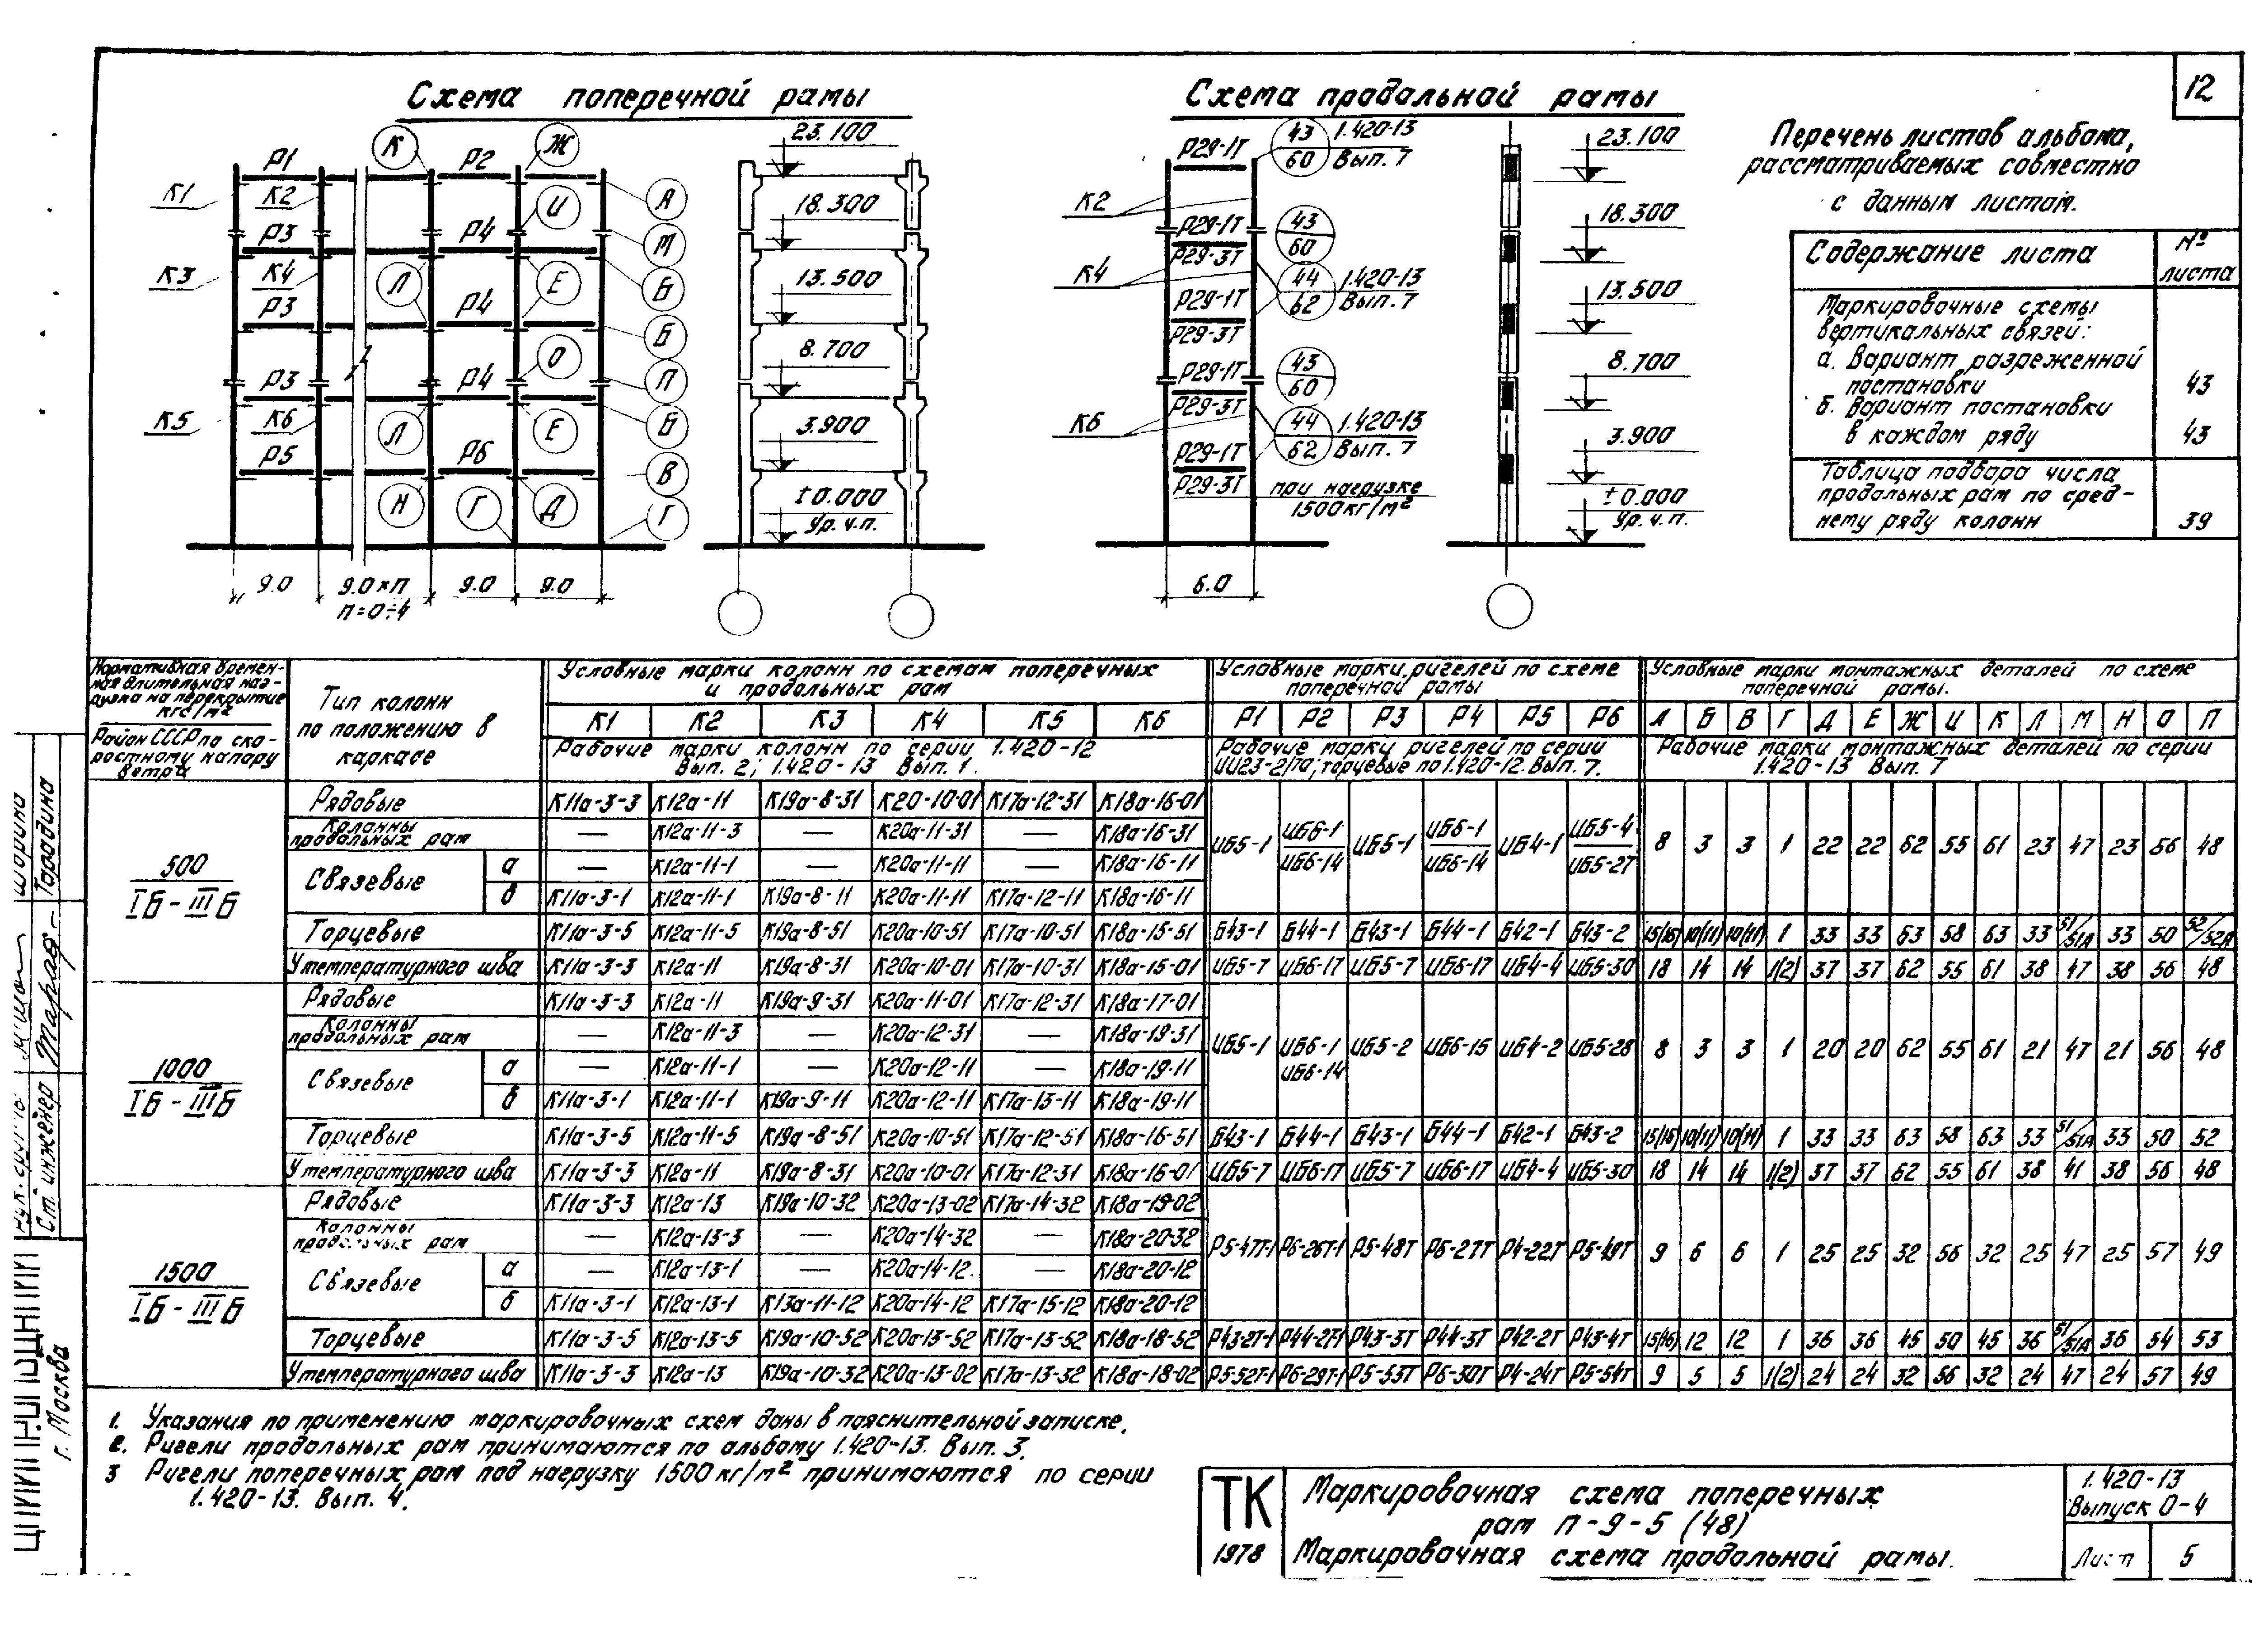 12
Схема поперечной рамы
К Ж
Р1 Р2
К1 К2 А
И
Р3 Р4 М
К3 К4 Л Е Б
Р3 Р4
Б
О
Р3 Р4 П
К5 К6 Л Е Б
Р5 Р6
В
Н Г Д Г
9.0 9.0×п 9.0 9.0
п=0÷4
23.100
18.300
13.500
8.700
3.900
±0.000
Ур. ч.п.
Схема продольной рамы
Р29-1Т 43 1.420-13
60 Вып. 7
К2
Р29-1Т 43
60
Р29-3Т
К4 44 1.420-13
62 Вып. 7
Р29-1Т
Р29-3Т
Р29-1Т 43
60
Р29-3Т
К6 44 1.420-13
62 Вып. 7
Р29-1Т
Р29-3Т при нагрузке
1500кг/м²
6.0
23.100
18.300
13.500
8.700
3.900
±0.000
Ур. ч.п.
Перечень листов альбома,
рассматриваемых совместно
с данным листом.
Содержание листа №
листа
Маркировочные схемы
вертикальных связей:
а. Вариант разреженной
постановки 43
б. Вариант постановки
в каждом ряду 43
Таблица подбора числа
продольных рам по сред-
нему ряду колонн 39
Нормативная времен-
ная длительная наг-
рузка на перекрытие
кгс/м²
Район СССР по ско-
ростному напору
ветра
Тип колонн
по положению в
каркасе
Условные марки колонн по схемам поперечных
и продольных рам
К1 К2 К3 К4 К5 К6
Рабочие марки колонн по серии 1.420-12
Вып. 2; 1.420-13 Вып. 1.
Условные марки ригелей по схеме
поперечной рамы
Р1 Р2 Р3 Р4 Р5 Р6
Рабочие марки ригелей по серии
ИИ23-2/70; торцевые по 1.420-12. Вып. 7.
Условные марки монтажных деталей по схеме
поперечной рамы.
А Б В Г Д Е Ж И К Л М Н О П
Рабочие марки монтажных деталей по серии
1.420-13 Вып. 7
500
Iб - IIIб
Рядовые К11а-3-3 К12а-11 К19а-8-31 К20-10-01 К17а-12-31 К18а-16-01
Колонны
продольных рам — К12а-11-3 — К20а-11-31 — К18а-16-31
Связевые а — К12а-11-1 — К20а-11-11 — К18а-16-11
б К11а-3-1 К12а-11-1 К19а-8-11 К20а-11-11 К17а-12-11 К18а-16-11
ИБ5-1 ИБ6-1 ИБ5-1 ИБ6-1 ИБ4-1 ИБ5-4 8 3 3 1 22 22 62 55 61 23 47 23 56 48
ИБ6-14 ИБ6-14 ИБ5-27
Торцевые К11а-3-5 К12а-11-5 К19а-8-51 К20а-10-51 К17а-10-51 К18а-15-51 Б43-1 Б44-1 Б43-1 Б44-1 Б42-1 Б43-2 15(16) 10(11) 10(11) 1 33 33 63 58 63 33 51/51А 33 50 52/52А
У температурного шва К11а-3-3 К12а-11 К19а-8-31 К20а-10-01 К17а-10-31 К18а-15-01 ИБ5-7 ИБ6-17 ИБ5-7 ИБ6-17 ИБ4-4 ИБ5-30 18 14 14 1(2) 37 37 62 55 61 38 47 38 56 48
1000
Iб - IIIб
Рядовые К11а-3-3 К12а-11 К19а-9-31 К20а-11-01 К17а-12-31 К18а-17-01
Колонны
продольных рам — К12а-11-3 — К20а-12-31 — К18а-19-31
Связевые а — К12а-11-1 — К20а-12-11 — К18а-19-11
б К11а-3-1 К12а-11-1 К19а-9-11 К20а-12-11 К17а-13-11 К18а-19-11
ИБ5-1 ИБ6-1 ИБ5-2 ИБ6-15 ИБ4-2 ИБ5-28 8 3 3 1 20 20 62 55 61 21 47 21 56 48
ИБ6-14
Торцевые К11а-3-5 К12а-11-5 К19а-8-51 К20а-10-51 К17а-12-51 К18а-16-51 Б43-1 Б44-1 Б43-1 Б44-1 Б42-1 Б43-2 15(16) 10(11) 10(11) 1 33 33 63 58 63 33 51/51А 33 50 52
У температурного шва К11а-3-3 К12а-11 К19а-8-31 К20а-10-01 К17а-12-31 К18а-16-01 ИБ5-7 ИБ6-17 ИБ5-7 ИБ6-17 ИБ4-4 ИБ5-30 18 14 14 1(2) 37 37 62 55 61 38 41 38 56 48
1500
Iб - IIIб
Рядовые К11а-3-3 К12а-13 К19а-10-32 К20а-13-02 К17а-14-32 К18а-19-02
Колонны
продольных рам — К12а-13-3 — К20а-14-32 — К18а-20-32
Связевые а — К12а-13-1 — К20а-14-12 — К18а-20-12
б К11а-3-1 К12а-13-1 К13а-11-12 К20а-14-12 К17а-15-12 К18а-20-12
Р5-47Т-1 Р6-26Т-1 Р5-48Т Р6-27Т Р4-22Т Р5-49Т 9 6 6 1 25 25 32 56 32 25 47 25 57 49
Торцевые К11а-3-5 К12а-13-5 К19а-10-52 К20а-13-52 К17а-13-52 К18а-18-52 Р43-2Т-1 Р44-2Т-1 Р43-3Т Р44-3Т Р42-2Т Р43-4Т 15(16) 12 12 1 36 36 45 50 45 36 51/51А 36 54 53
У температурного шва К11а-3-3 К12а-13 К19а-10-32 К20а-13-02 К17а-13-32 К18а-18-02 Р5-52Т-1 Р6-29Т-1 Р5-53Т Р6-30Т Р4-24Т Р5-54Т 9 5 5 1(2) 24 24 32 56 32 24 47 24 57 49
1. Указания по применению маркировочных схем даны в пояснительной записке.
2. Ригели продольных рам принимаются по альбому 1.420-13. Вып. 3.
3 Ригели поперечных рам под нагрузку 1500кг/м² принимаются по серии
1.420-13. Вып. 4.
ТК
1978
Маркировочная схема поперечных
рам П-9-5 (48)
Маркировочная схема продольной рамы.
1.420-13
Выпуск 0-4
Лист 5
Ст. инженер
г. Москва